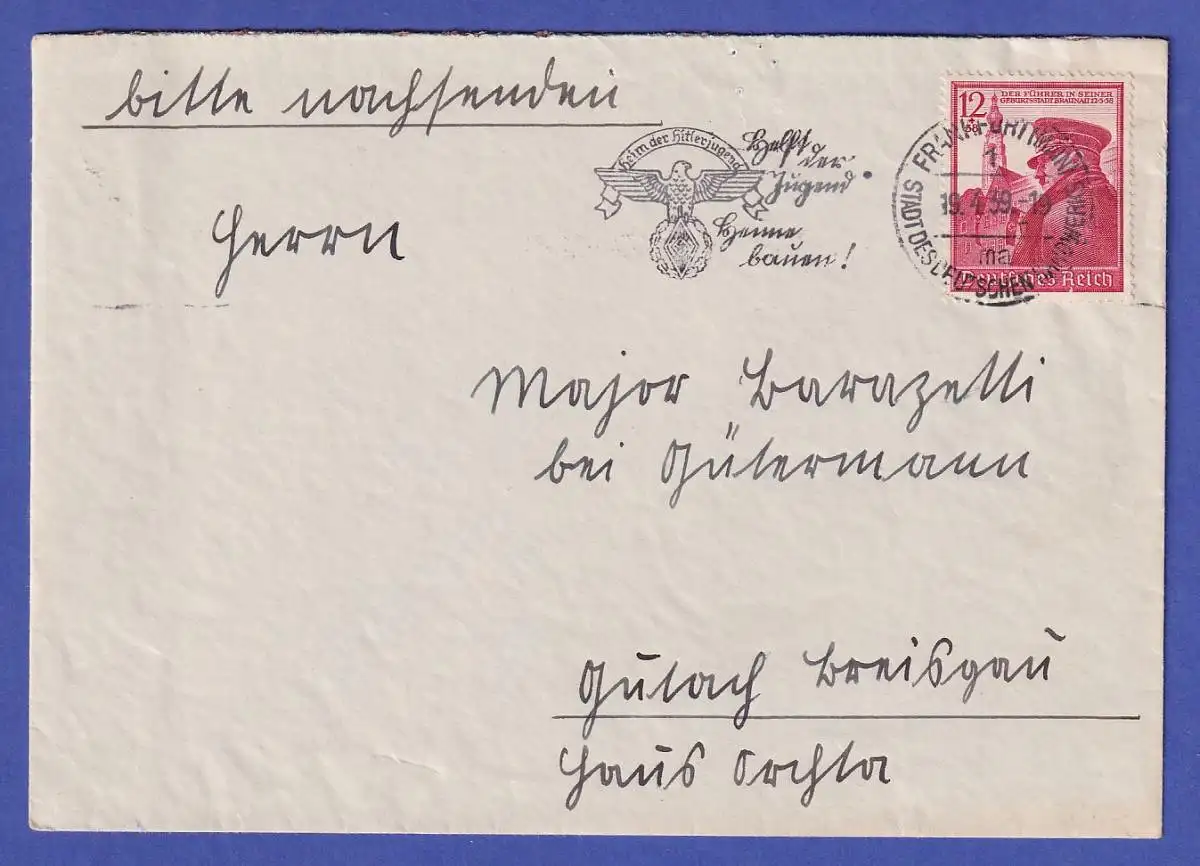 bitte nachsenden
Heim der Hitlerjugend
Helft
der
Jugend
Heime
bauen!
12
+38
DER FÜHRER IN SEINER
GEBURTSSTADT BRAUNAU 12·3·38
Deutsches Reich
FRANKFURT (MAIN)
1
19.4.39.-19
ma
STADT DES DEUTSCHEN HANDWERKS
Herrn
Major Barazetti
bei Gütermann
Gutach Breisgau
Haus